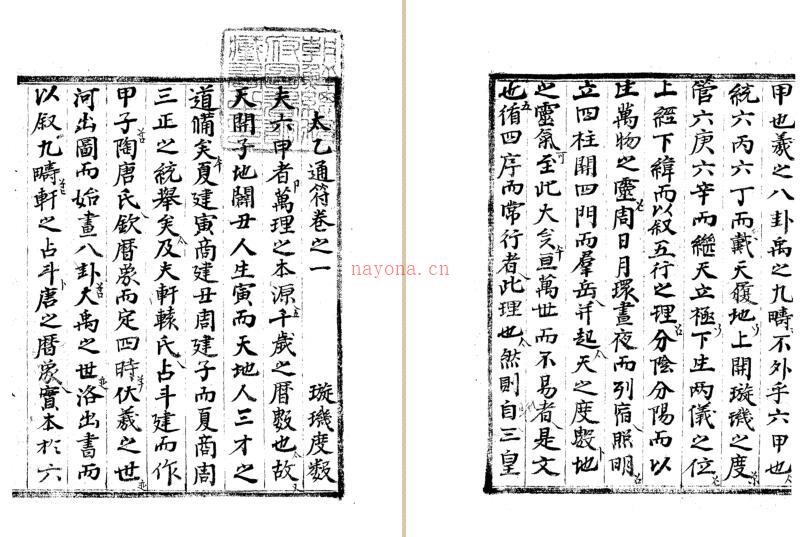 太乙通符卷之一 璇璣度数
夫六甲者萬理之本源千歲之曆數也故
天開子地闢丑人生寅而天地人三才之
道備矣夏建寅商建丑周建子而夏商周
三正之統舉矣及夫軒轅氏占斗建而作
甲子陶唐氏欽曆象而定四時伏羲之世
河出圖而始畫八卦大禹之世洛出書而
以叙九疇軒之占斗唐之曆象實本於六
甲也羲之八卦禹之九疇不外乎六甲也
統六丙六丁而戴天履地上關璇璣之度
管六庚六辛而繼天立極下生两儀之位
上經下緯而以叙五行之理分陰分陽而以
生萬物之靈周日月環晝夜而列宿照明
立四柱開四門而羣岳并起天之度數地
之靈氣至此大矣亘萬世而不易者是文
也循四序而常行者此理也然則自三皇
nayona.cn